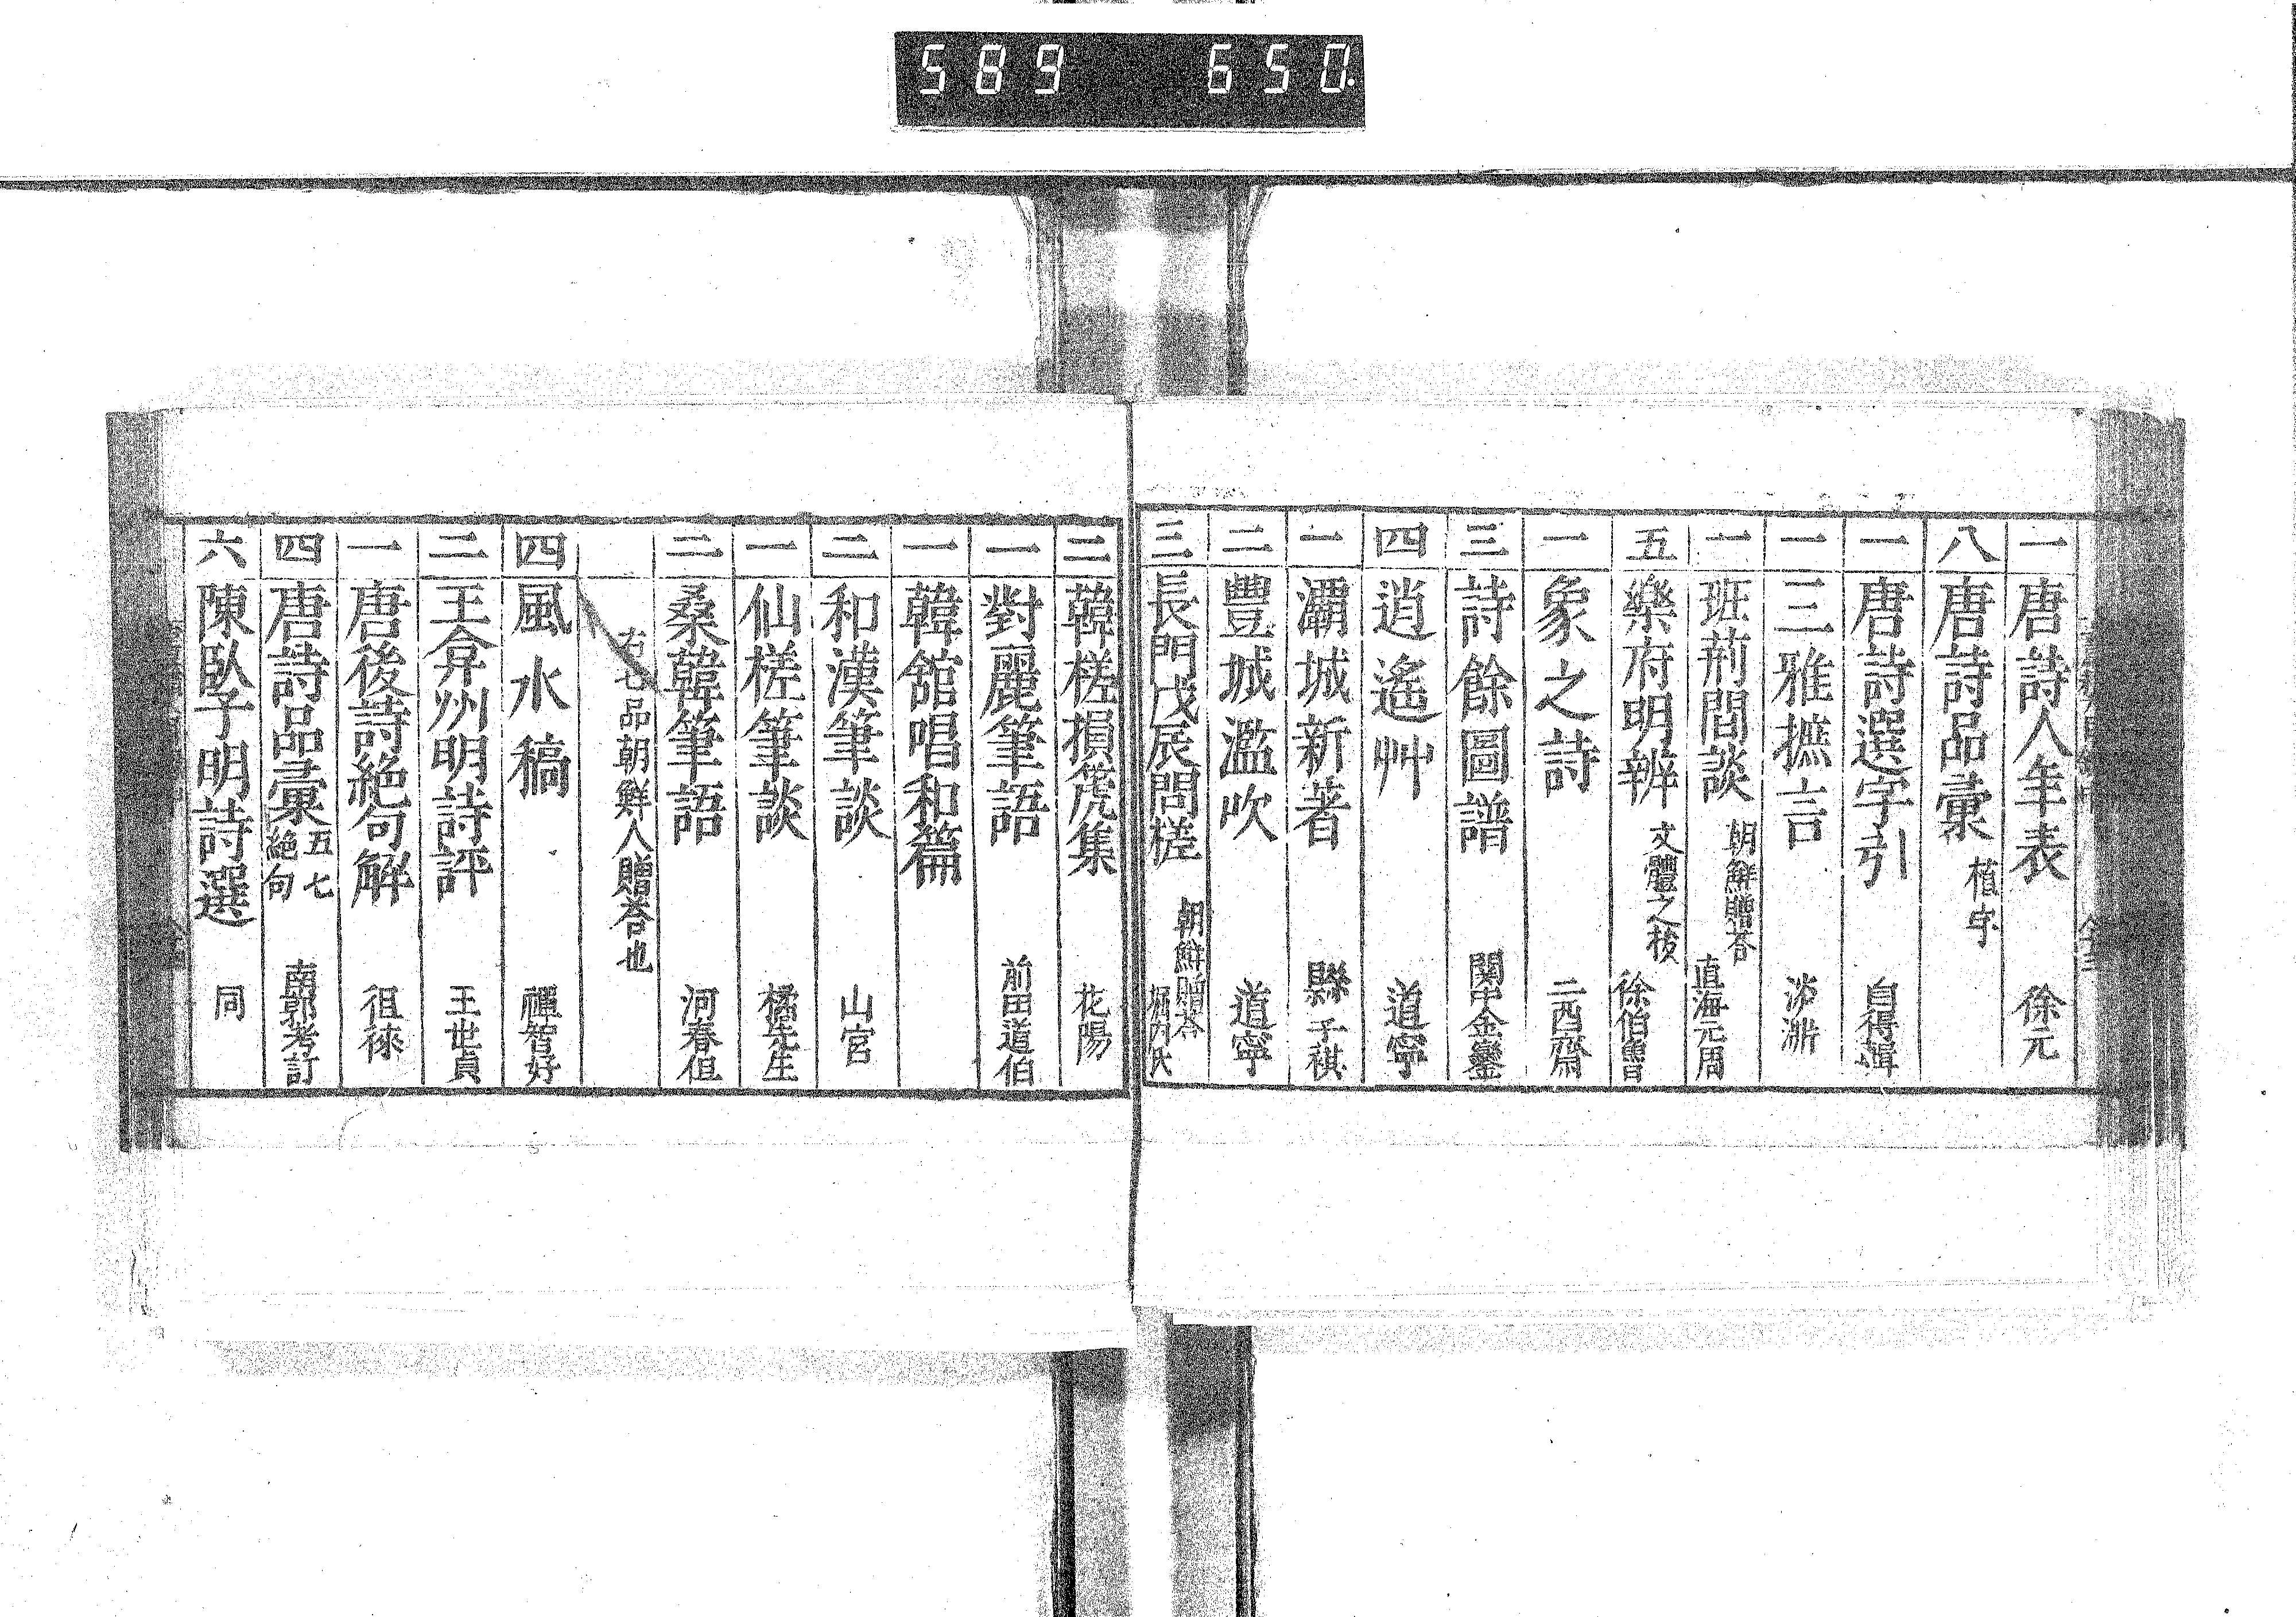 589 650.
一 唐詩人年表 徐元
八 唐詩品彙 植字
一 唐詩選字引 自得輯
一 三雅摭言 淡淅
一 班荊間談 朝鮮贈荅 直海元周
五 樂府明辨 文體之抜 徐伯魯
一 象之詩 二西齋
三 詩餘圖譜 関中金鑾
四 逍遙艸 道寧
一 灞城新著 縣子祺
二 豐城濫吹 道寧
三 長門戊辰問槎 朝鮮贈荅 堀内氏
二 韓槎損箎集 花陽
一 對麗筆語 前田道伯
一 韓舘唱和篇
二 和漢筆談 山宮
一 仙槎筆談 橘先生
二 桑韓筆語 河春恒
右七品朝鮮人贈荅也
四 風水稿 禪智好
二 王弇州明詩評 王世貞
一 唐後詩絕句解 徂徠
四 唐詩品彙 五七絕句 南郭考訂
六 陳臥子明詩選 同